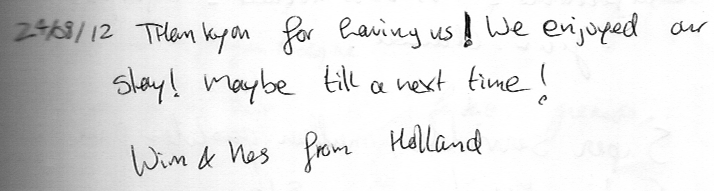 24/08/12 Thank you for having us! We enjoyed our
stay! Maybe till a next time!
Wim & Nes from Holland